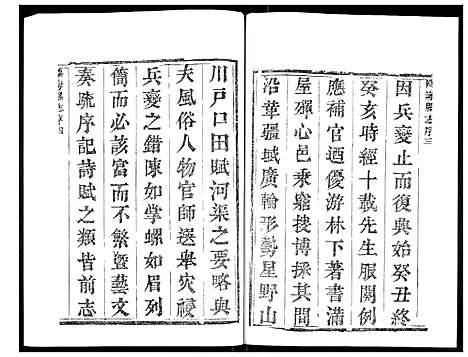 因兵變止而復與始癸丑終
癸亥時經十載先生服闋例
應補官迺優游林下著書滿
屋殫心邑乘窮搜博採其間
沿革疆域廣輪形勢星野山
川戸口田賦河渠之要略與
夫風俗人物官師選舉灾祲
兵變之錯陳如掌螺如眉列
簡而必該富而不繁暨藝文
奏疏序記詩賦之類皆前志